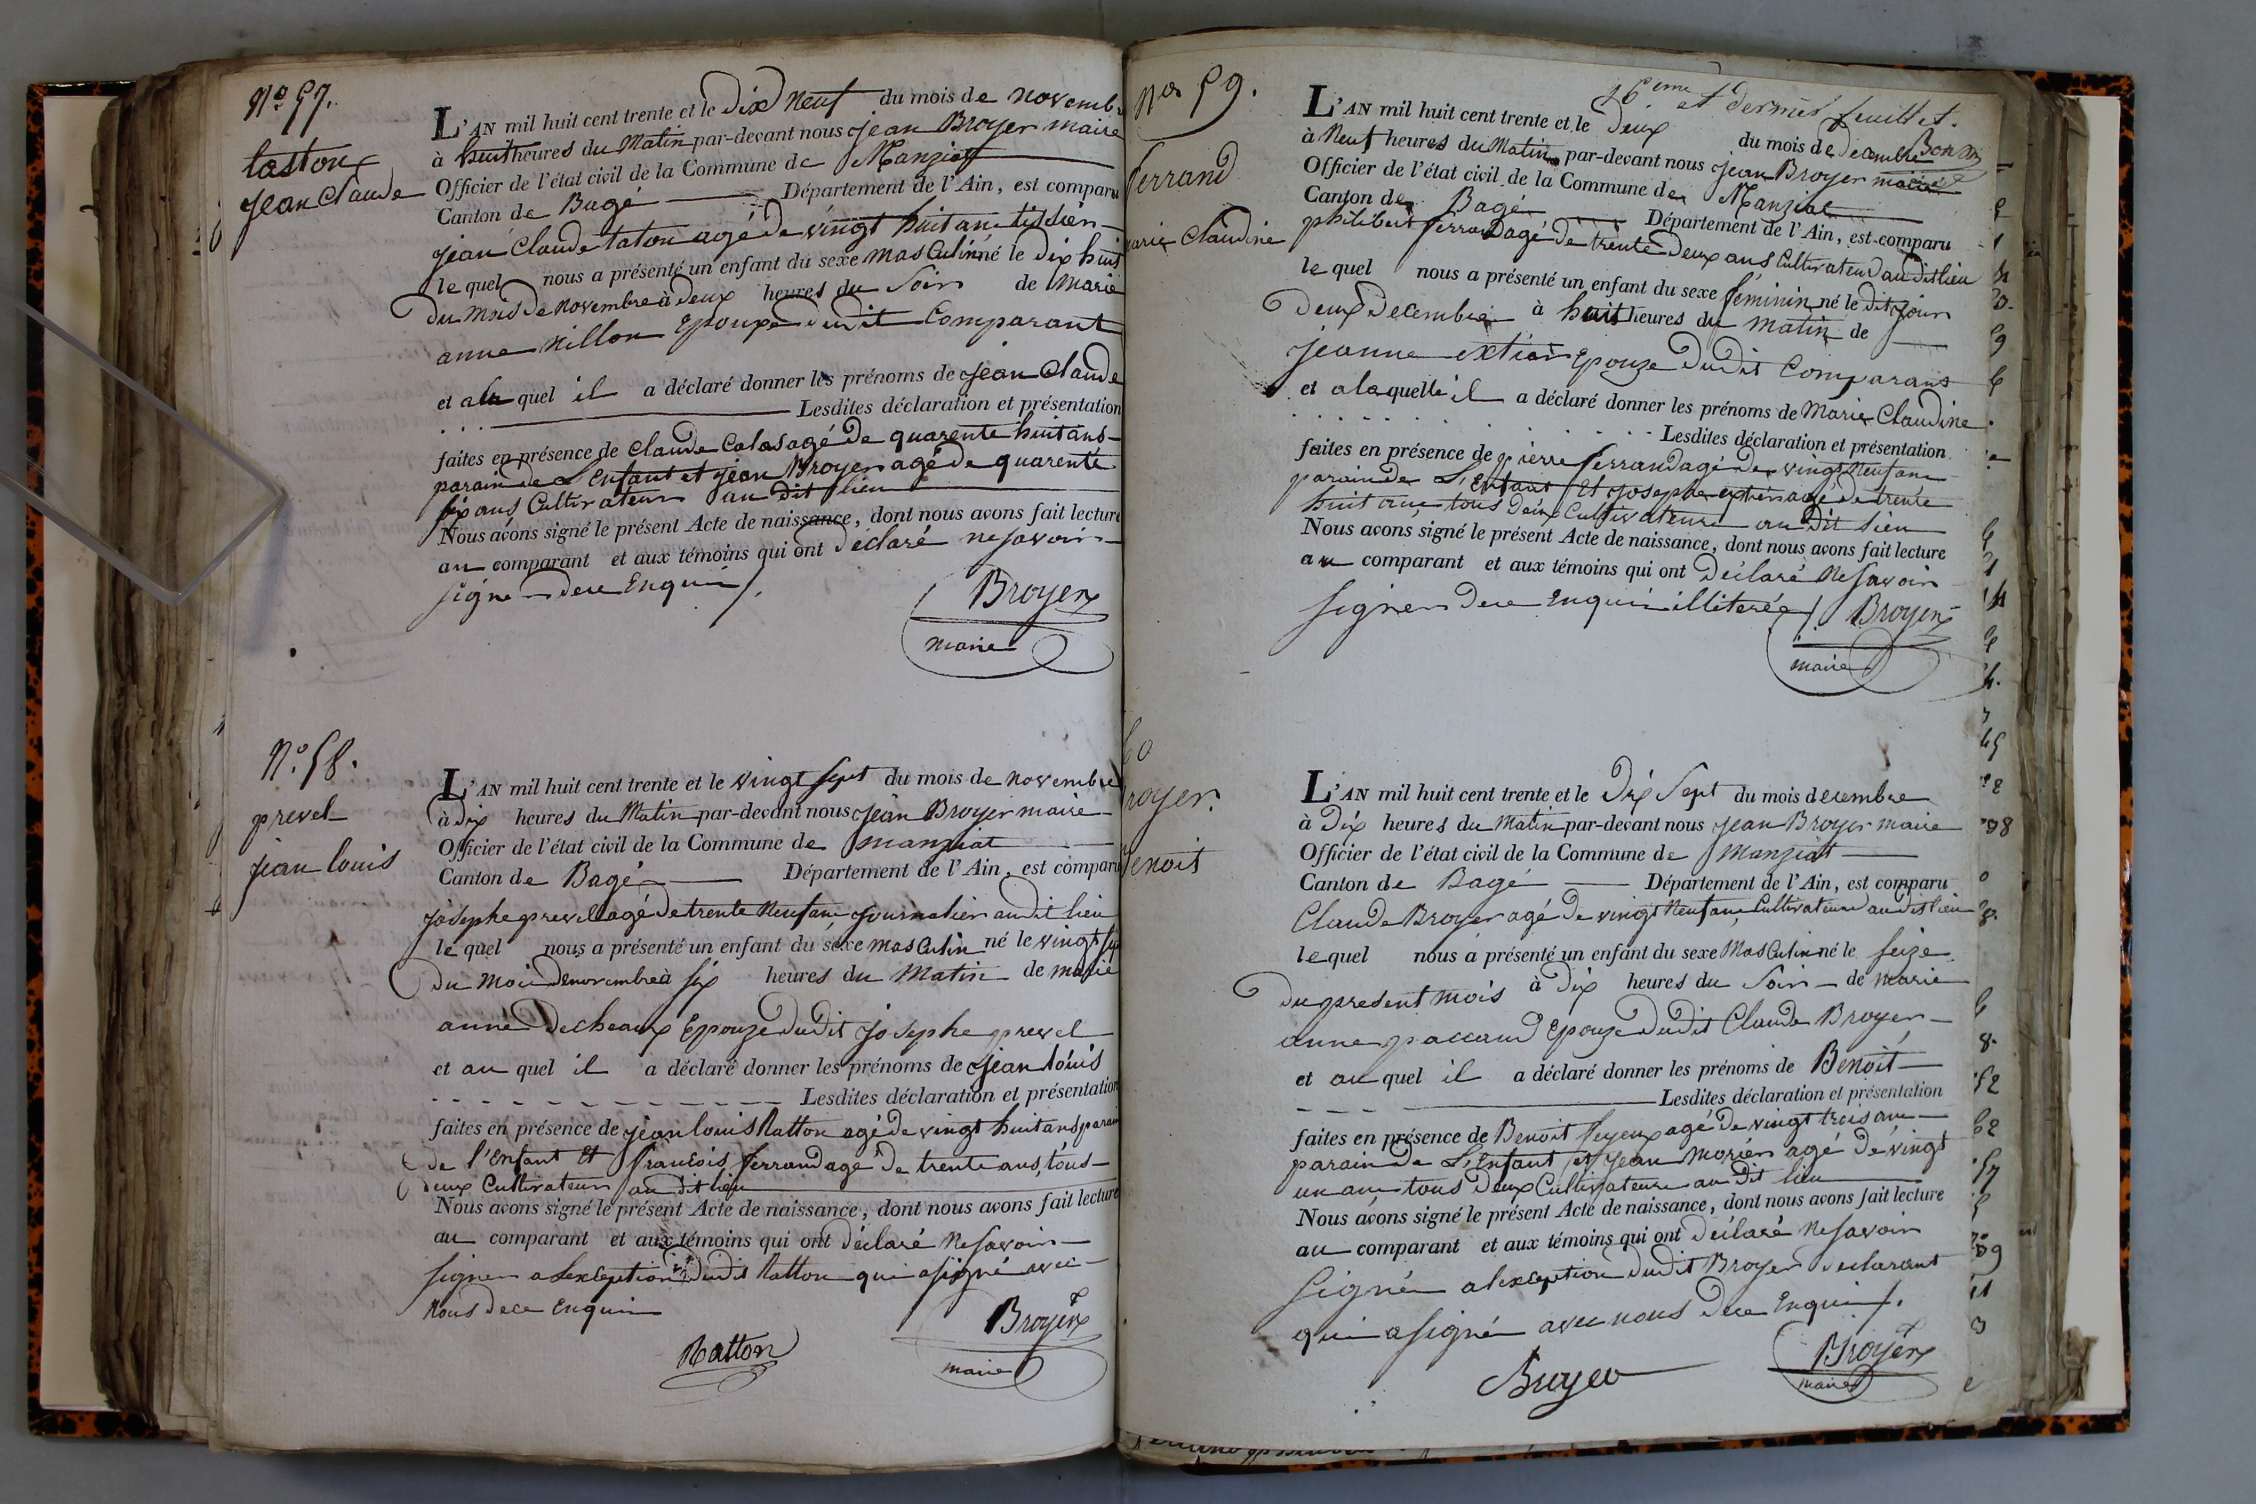 N.º 57.
taston
jean Claude
L'AN mil huit cent trente et le Dix neuf du mois de novemb
à huit heures du Matin par-devant nous jean Broyer maire
Officier de l'état civil de la Commune de Manziat
Canton de Bagé Département de l'Ain, est comparu
jean Claude taton agé de vingt huit ans tissier
le quel nous a présenté un enfant du sexe masCulin né le dix huit
Du mois de novembre à deux heures du Soir de Marie
anne nillon Epouze dudit Comparant
et au quel il a déclaré donner les prénoms de jean Claude
Lesdites déclaration et présentation
faites en présence de Claude Colas agé de quarente huit ans
parain de L'Enfant et jean Broyer agé de quarente
six ans Cultivateurs au dit lieu
Nous avons signé le présent Acte de naissance, dont nous avons fait lecture
au comparant et aux témoins qui ont déclaré ne savoir
signer de ce Enquis /.
Broyer
maire
N.º 58.
prevel
jean louis
L'AN mil huit cent trente et le vingt sept du mois de novembre
à Dix heures du Matin par-devant nous jean Broyer maire
Officier de l'état civil de la Commune de manziat
Canton de Bagé Département de l'Ain, est comparu
josephe prevel agé de trente neuf ans journalier audit lieu
le quel nous a présenté un enfant du sexe masCulin né le vingt sep
Du mois de novembre à six heures du Matin de marie
anne Decheaux Epouze dudit josephe prevel
et au quel il a déclaré donner les prénoms de jean louis
Lesdites déclaration et présentation
faites en présence de jean louis Ratton agé de vingt huit ans parain
de l'Enfant Et françois ferrand agé de trente ans, tous
deux Cultivateurs au dit lieu
Nous avons signé le présent Acte de naissance, dont nous avons fait lecture
au comparant et aux témoins qui ont déclaré ne savoir
signer a Lexception dudit Ratton qui a signé avec
nous de ce Enquis
Ratton
Broyer
maire
16.eme et dernier feuillet.
N.º 59.
ferrand
marie Claudine
L'AN mil huit cent trente et le deux du mois de decembre
à neuf heures du Matin par-devant nous jean Broyer maire
Officier de l'état civil de la Commune de Manziat
Canton de Bagé Département de l'Ain, est comparu
philibert ferrand agé de trente deux ans Cultivateur au dit lieu
le quel nous a présenté un enfant du sexe féminin né le dit jour
deux decembre à huit heures du matin de
jeanne extier Epouze dudit Comparans
et a laquelle il a déclaré donner les prénoms de Marie Claudine
Lesdites déclaration et présentation
faites en présence de pierre ferrand agé de vingt neuf ans
parain de L'Enfant Et josephe extier agé de trente
huit ans tous deux Cultivateurs au dit lieu
Nous avons signé le présent Acte de naissance, dont nous avons fait lecture
au comparant et aux témoins qui ont déclaré ne savoir
signer de ce Enquis illiterée / Broyer
maire
60
royer.
Benoit
L'AN mil huit cent trente et le Dix Sept du mois decembre
à Dix heures du Matin par-devant nous jean Broyer maire
Officier de l'état civil de la Commune de Manziat
Canton de Bagé Département de l'Ain, est comparu
Claude Broyer agé de vingt neuf ans Cultivateur audit lieu
le quel nous a présenté un enfant du sexe MasCulin né le seize
du present mois à Dix heures du Soir de marie
anne paccaud Epouze dudit Claude Broyer
et au quel il a déclaré donner les prénoms de Benoit
Lesdites déclaration et présentation
faites en présence de Benoit feyeux agé de vingt trois ans
parain de L'Enfant et jean Morier agé de vingt
un ans tous deux Cultivateurs au dit lieu
Nous avons signé le présent Acte de naissance, dont nous avons fait lecture
au comparant et aux témoins qui ont déclaré ne savoir
signer a lexception dudit Broyer declarant
qui a signé avec nous de ce Enquis /.
Broyer
Broyer
maire